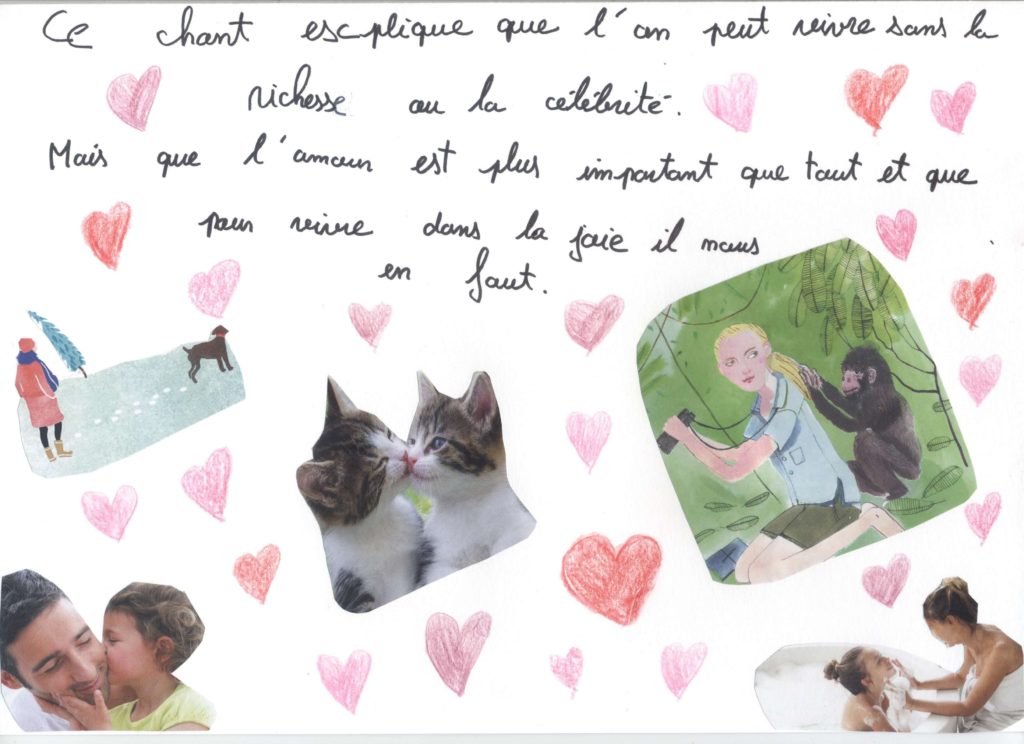 Ce chant esxplique que l'on peut vivre sans la
richesse ou la célébrité.
Mais que l'amour est plus important que tout et que
pour vivre dans la joie il nous
en faut.